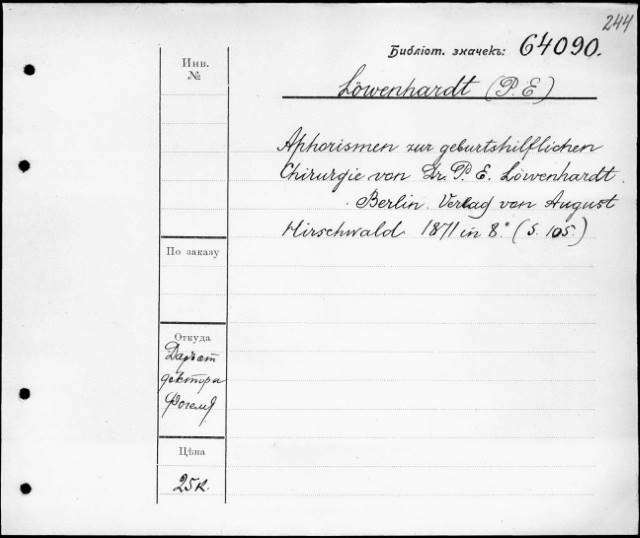 244
Библіот. значекъ: 64090.
Инв.
№
Löwenhardt (P. E)
Aphorismen zur geburtshilflichen
Chirurgie von Dr. P. E. Löwenhardt.
Berlin. Verlag von August
Hirschwald 1871 in 8° (S. 105)
По заказу
Откуда
доктора
Цѣна
25 к.